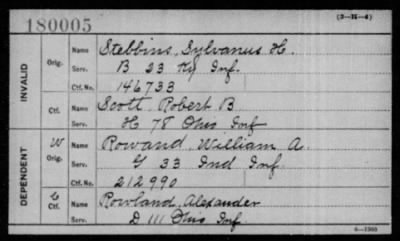 180005
(3—H—4)
INVALID
Orig.
Name Stebbins, Sylvanus H.
Serv. B 23 Ky Inf.
Ctf. No. 146733
Ctf.
Name Scott, Robert B
Serv. H 78 Ohio Inf
DEPENDENT
W
Orig.
Name Rowand, William A.
Serv. G 33 Ind Inf.
Ctf. No. 212990
C
Ctf.
Name Rowland, Alexander
Serv. D 111 Ohio Inf
6—1360